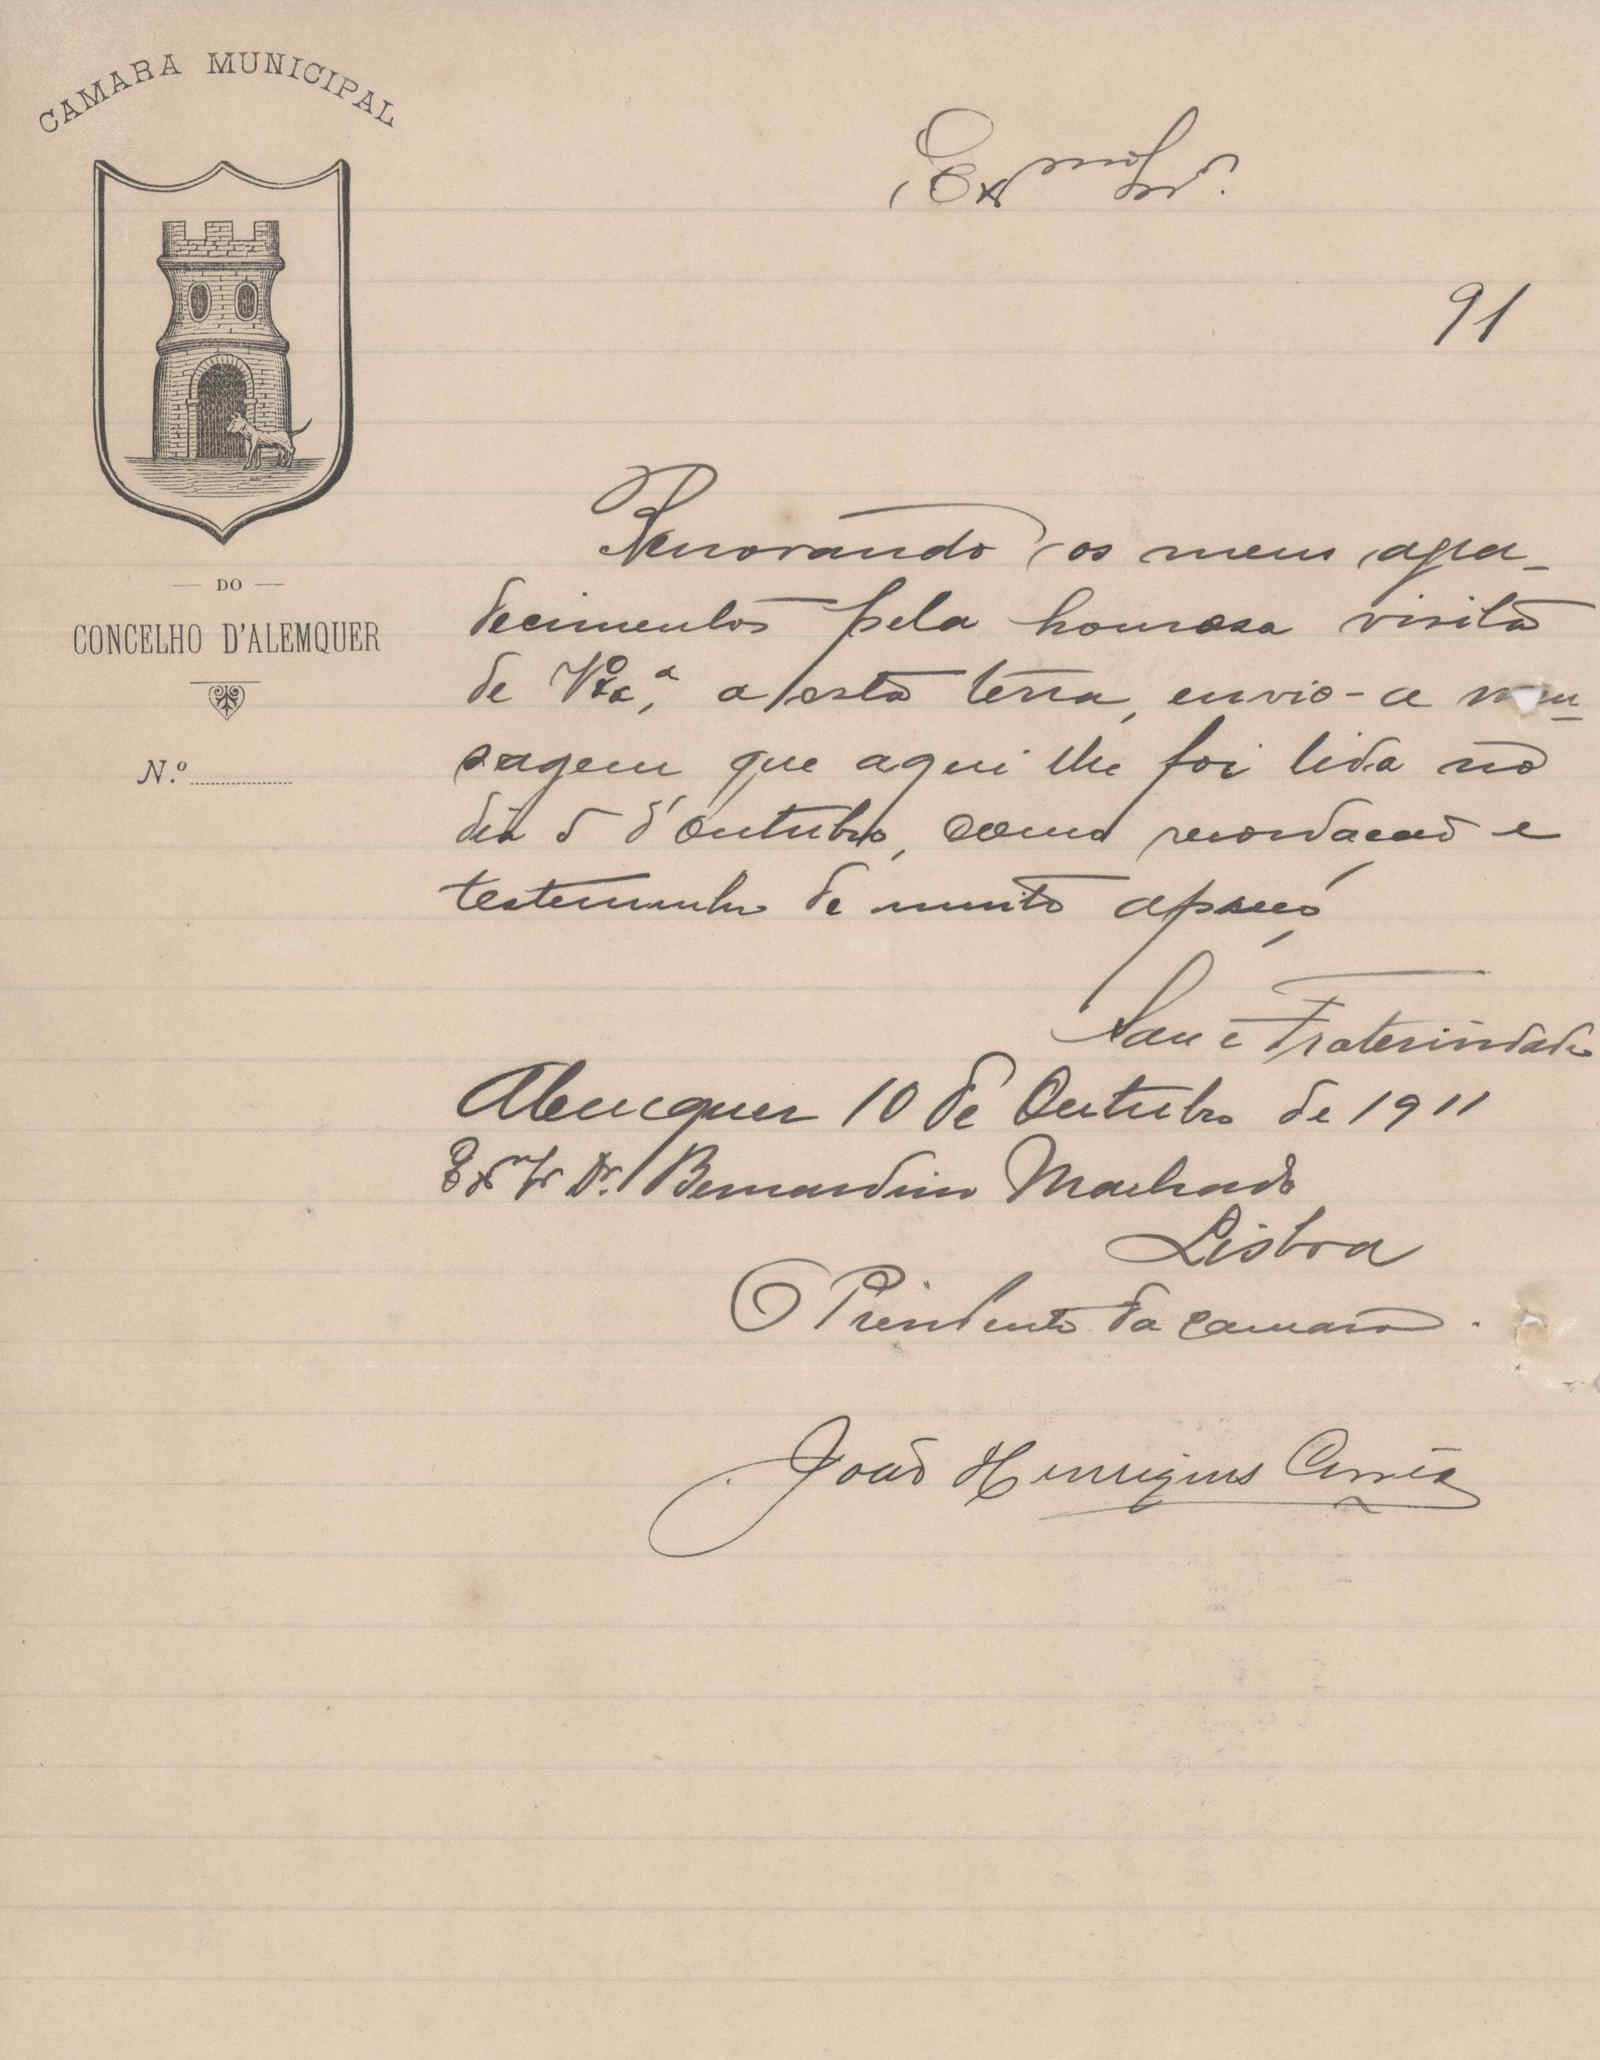 CAMARA MUNICIPAL
DO
CONCELHO D'ALEMQUER
N.º
Exmo Snr.
91
Renovando os meus agra-
decimentos pela honrosa visita
de V. Exa, a esta terra, envio-a men-
sagem que aqui lhe foi lida no
dia 5 d'Outubro, como recordacao e
testemunho de muito apreço,
Saude e Fraternidade
Alemquer 10 de Outubro de 1911
Exmo Sr Dr. Bernardino Machado
Lisboa
O Presidente da Camara.
João Henriques Corrêa